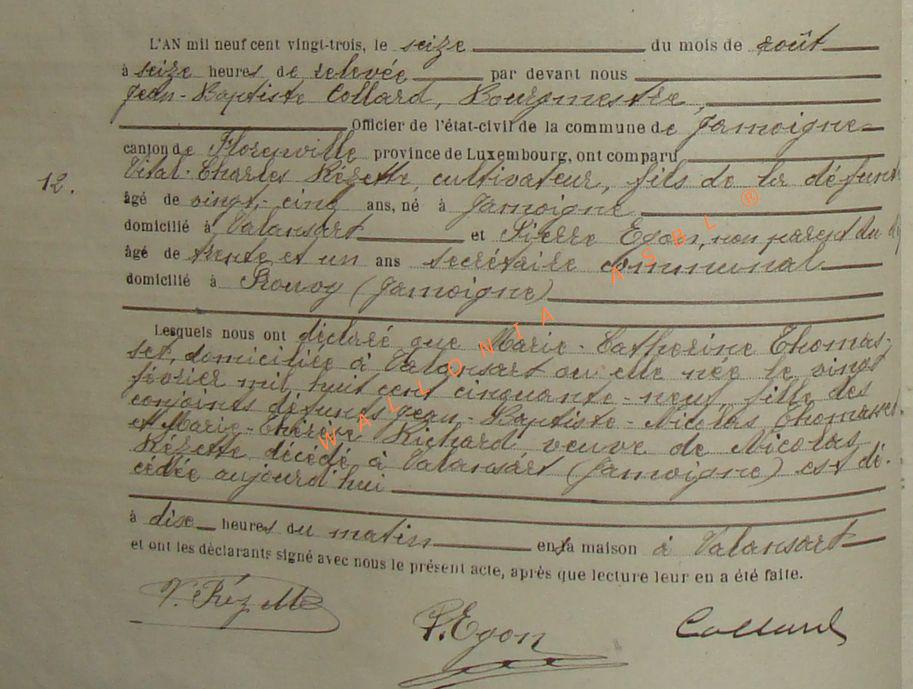 L'AN mil neuf cent vingt-trois, le seize du mois de août
à seize heures de relevée par devant nous
Jean-Baptiste Collard, Bourgmestre,
Officier de l'état-civil de la commune de Jamoigne
canton de Florenville province de Luxembourg, ont comparu
12. Vital-Charles Rézette, cultivateur, fils de la défunte
âgé de vingt-cinq ans, né à Jamoigne
domicilié à Valansart et Pierre Egon, non parent du
âgé de trente et un ans secrétaire communal
domicilié à Prouvoy (Jamoigne)
Lesquels nous ont déclaré que Marie-Catherine Thomas-
set, domiciliée à Valansart où elle née le vingt
février mil huit cent cinquante-neuf, fille des
conjoints défunts Jean-Baptiste-Nicolas Thomasset
et Marie-Thérèse Richard veuve de Nicolas
Rézette décédé à Valansart (Jamoigne) est dé-
cédée aujourd'hui
à dise heures du matin en sa maison à Valansart
et ont les déclarants signé avec nous le présent acte, après que lecture leur en a été faite.
V. Rézette P. Egon Collard
WALLONIA ASBL ®